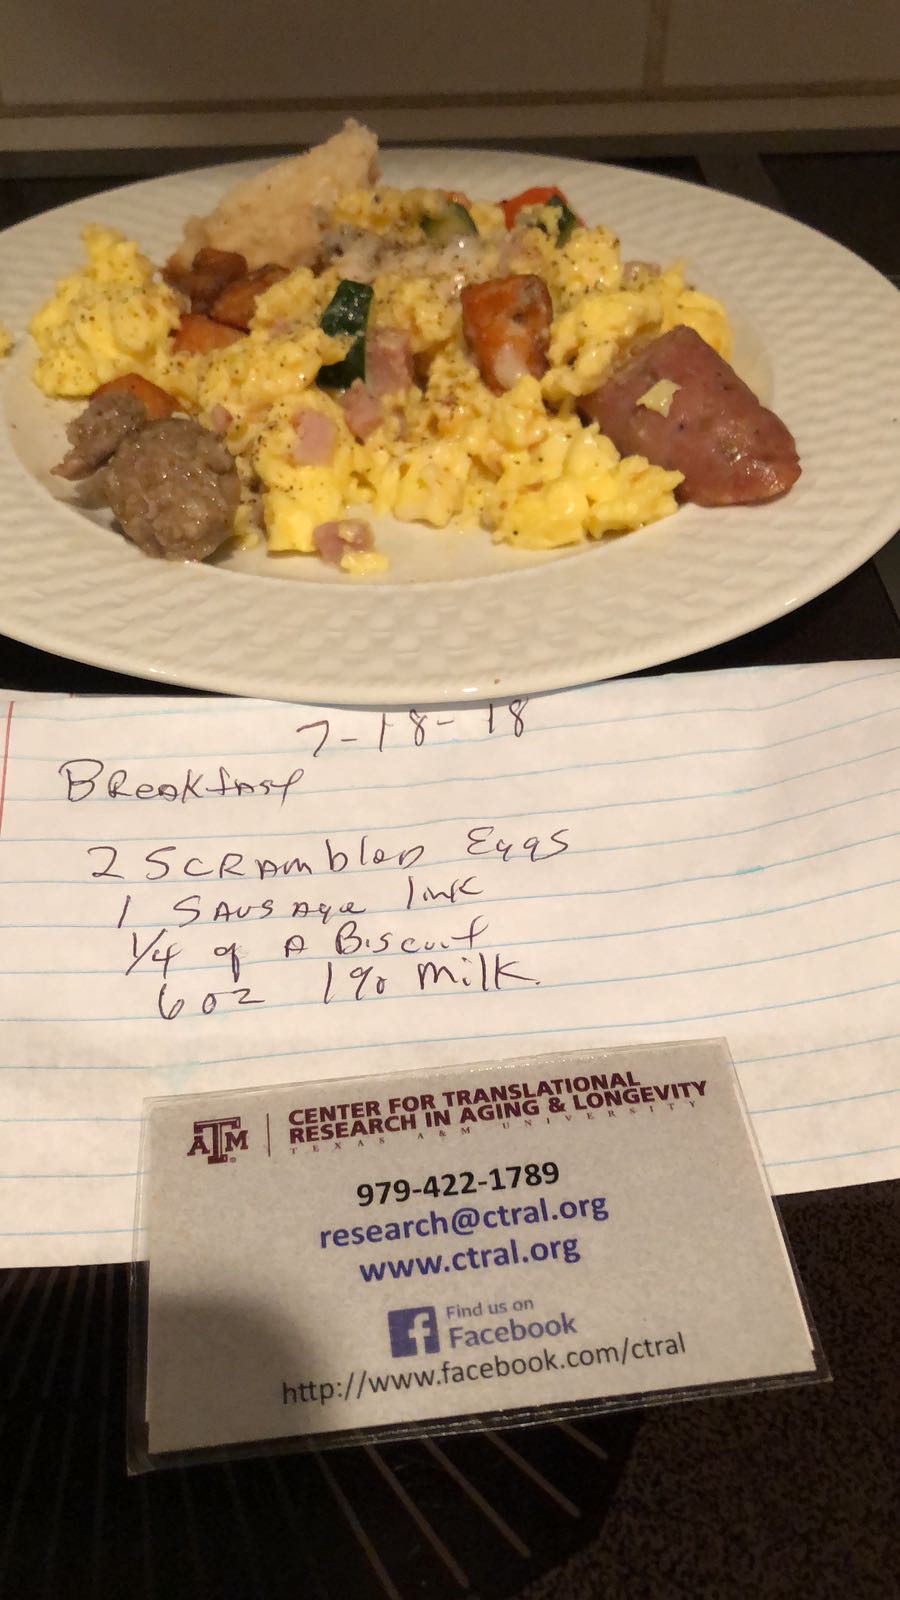 7-18-18
Breakfast
2 Scrambled Eggs
1 Sausage link
1/4 of A Biscuit
6 oz 1% Milk.
ATM | CENTER FOR TRANSLATIONAL
RESEARCH IN AGING & LONGEVITY
TEXAS A&M UNIVERSITY
979-422-1789
research@ctral.org
www.ctral.org
f Find us on
Facebook
http://www.facebook.com/ctral